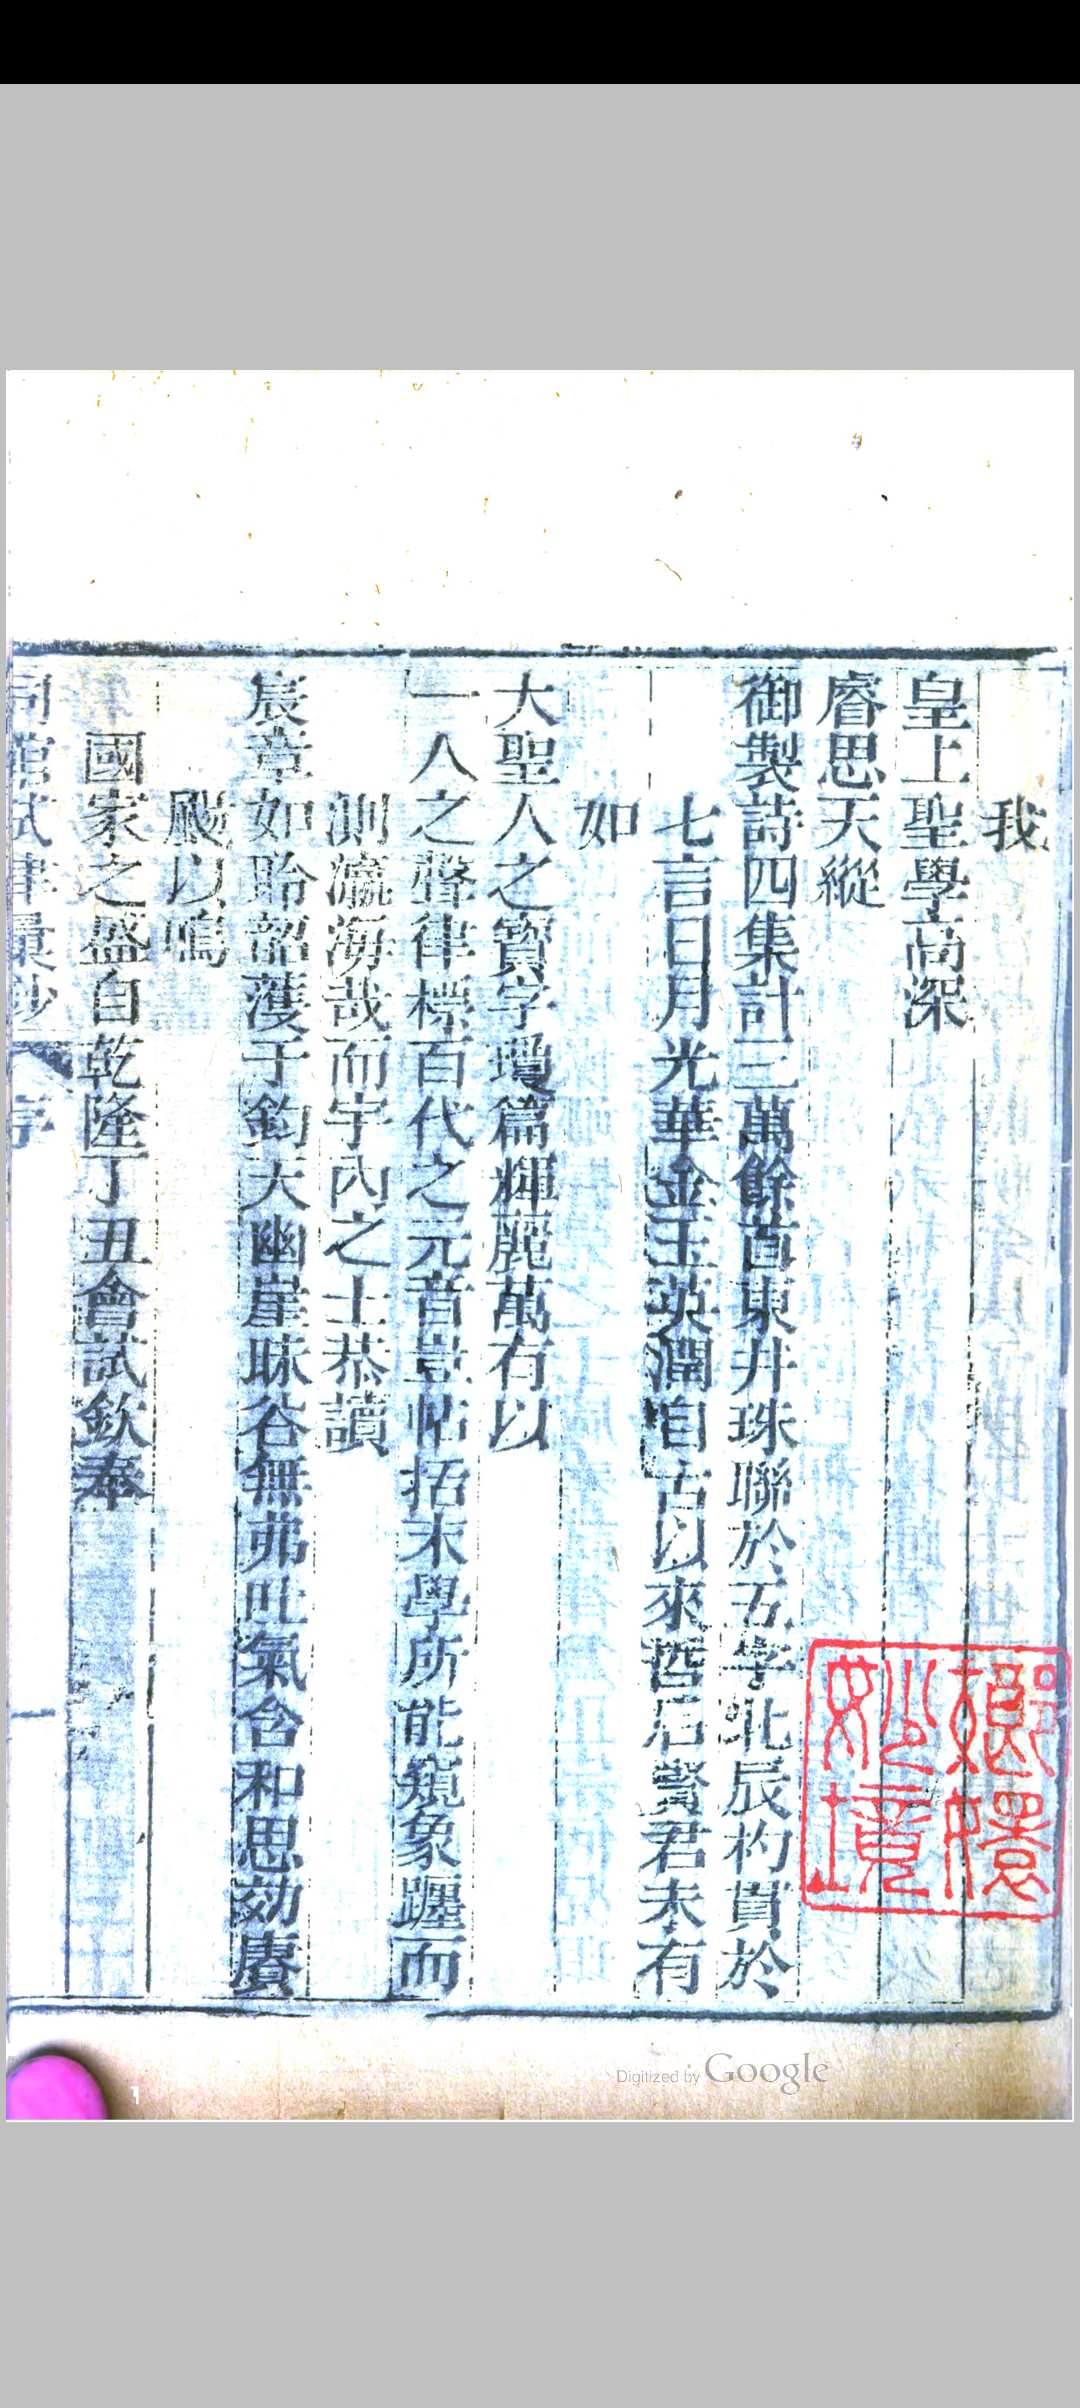 我
皇上聖學高深
睿思天縱
御製詩四集計三萬餘首東井珠聯於五字北辰杓貫於
七言日月光華金玉英潤自古以來哲后賢君未有
如
大聖人之寶字瓊篇輝麗萬有以
一人之聲律標百代之元音豈帖括末學所能窺象躔而
測瀛海哉而宇內之士恭讀
宸章如聆韶濩于鈞天幽崖昧谷無弗吐氣含和思効賡
颺以鳴
國家之盛自乾隆丁丑會試欽奉
同館試律彙鈔 序 一
嫏嬛妙境
Digitized by Google
1